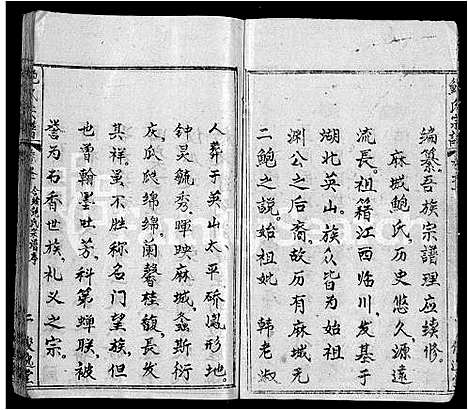 鲍氏宗譜
编纂。吾族宗譜理应续修。
麻城鲍氏，历史悠久，源遠
流長。祖籍江西临川，发基于
湖北英山。族众皆为始祖
润公之后裔。故历有麻城无
二鲍之説。始祖妣 韩老淑
人葬于英山太平矫凤形地。
钟灵毓秀。晖映麻城。螽斯衍
庆。瓜瓞绵绵。蘭馨桂馥。長发
其祥。虽不胜称名门望族。但
也曽翰墨吐芳。科第蝉联。被
誉为名香世族。礼义之宗。
会緒鲍氏宗谱序